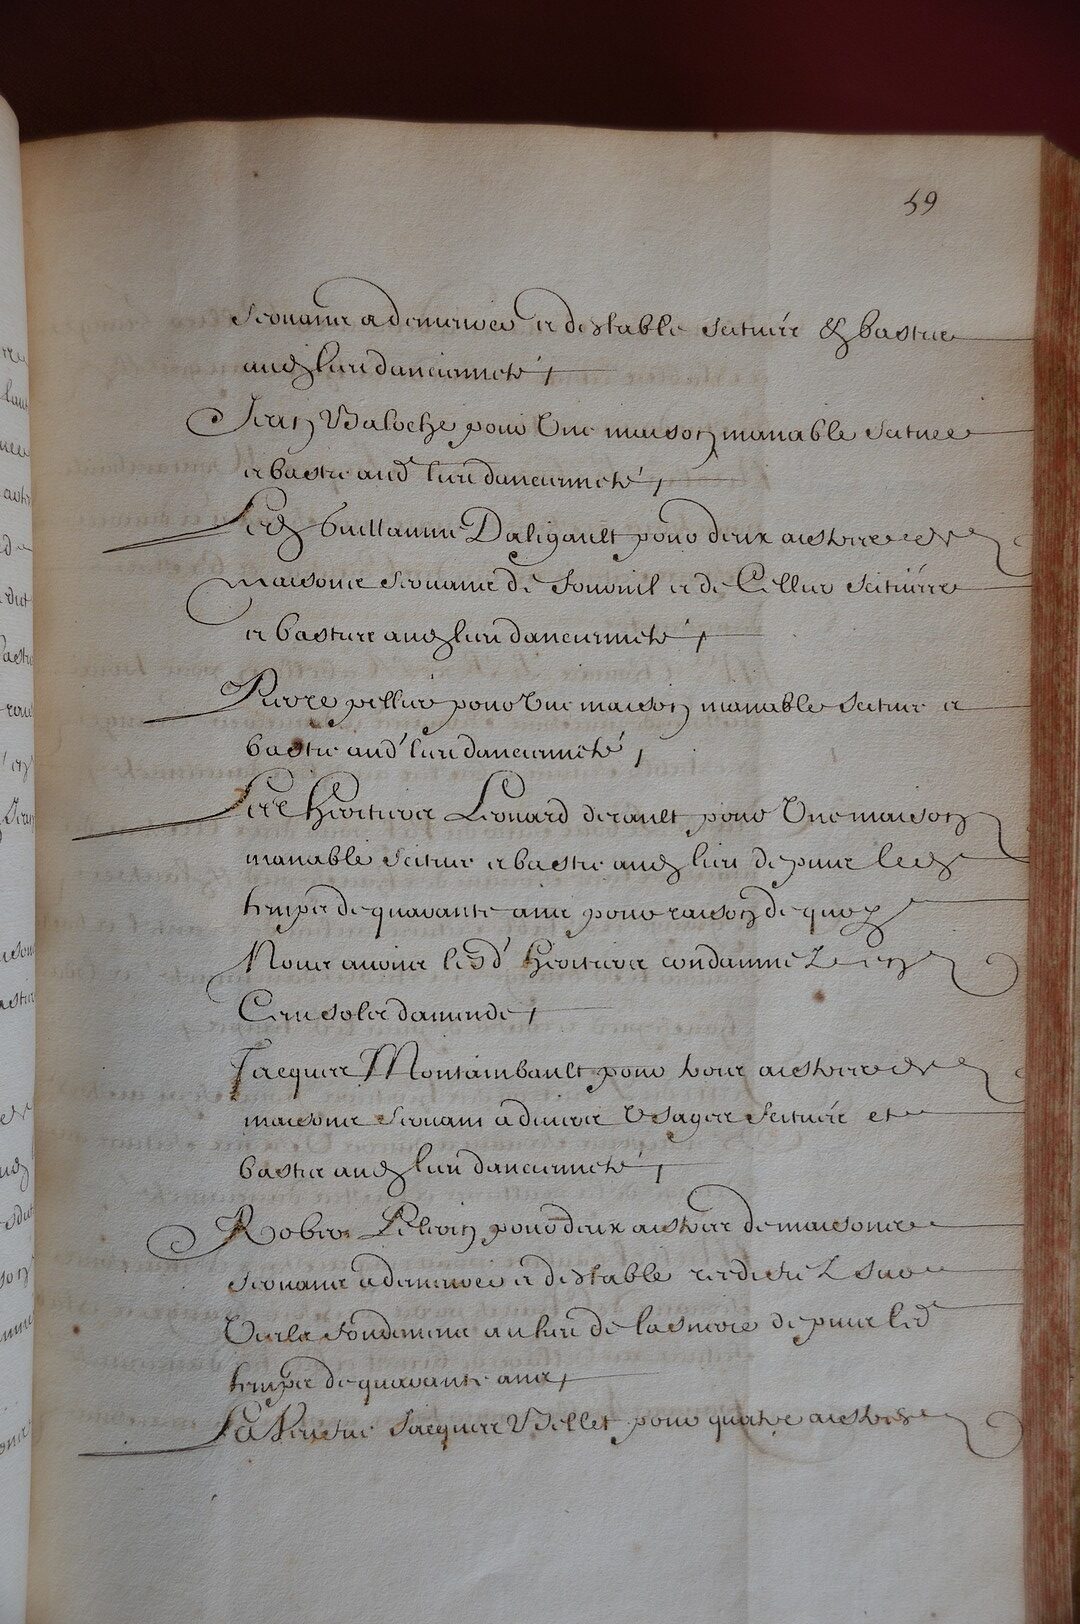 59
servans a demeures et destable scituéés & basties
aud lieu danciennete,
Jean Baloche pour Une maison manable scituee
et bastie aud lieu danciennete,
Led Guillaume Daligault pour deux aistres de
maisons servans de fournil et de Cellier scituéés
et basties aud lieu danciennete,
Pierre pellier pour Une maison manable scituee et
bastie aud lieu danciennete,
Les Heritiers Leonard derault pour Une maison
manable scituee et bastie aud lieu depuis led
temps de quarante ans pour raison de quoy
Nous avons lesd Heritiers condamnez en
Cen solz damende,
Jacques Montambault pour trois aistres de
maisons servans a divers Usages scituéés et
basties aud lieu danciennete,
Robert pour deux aistres de maisons
servans a demeures et destable reediffiez sur
Vielz fondemens au lieu de depuis led
temps de quarante ans,
La Veufve Jacques Bellet pour quatre aistres